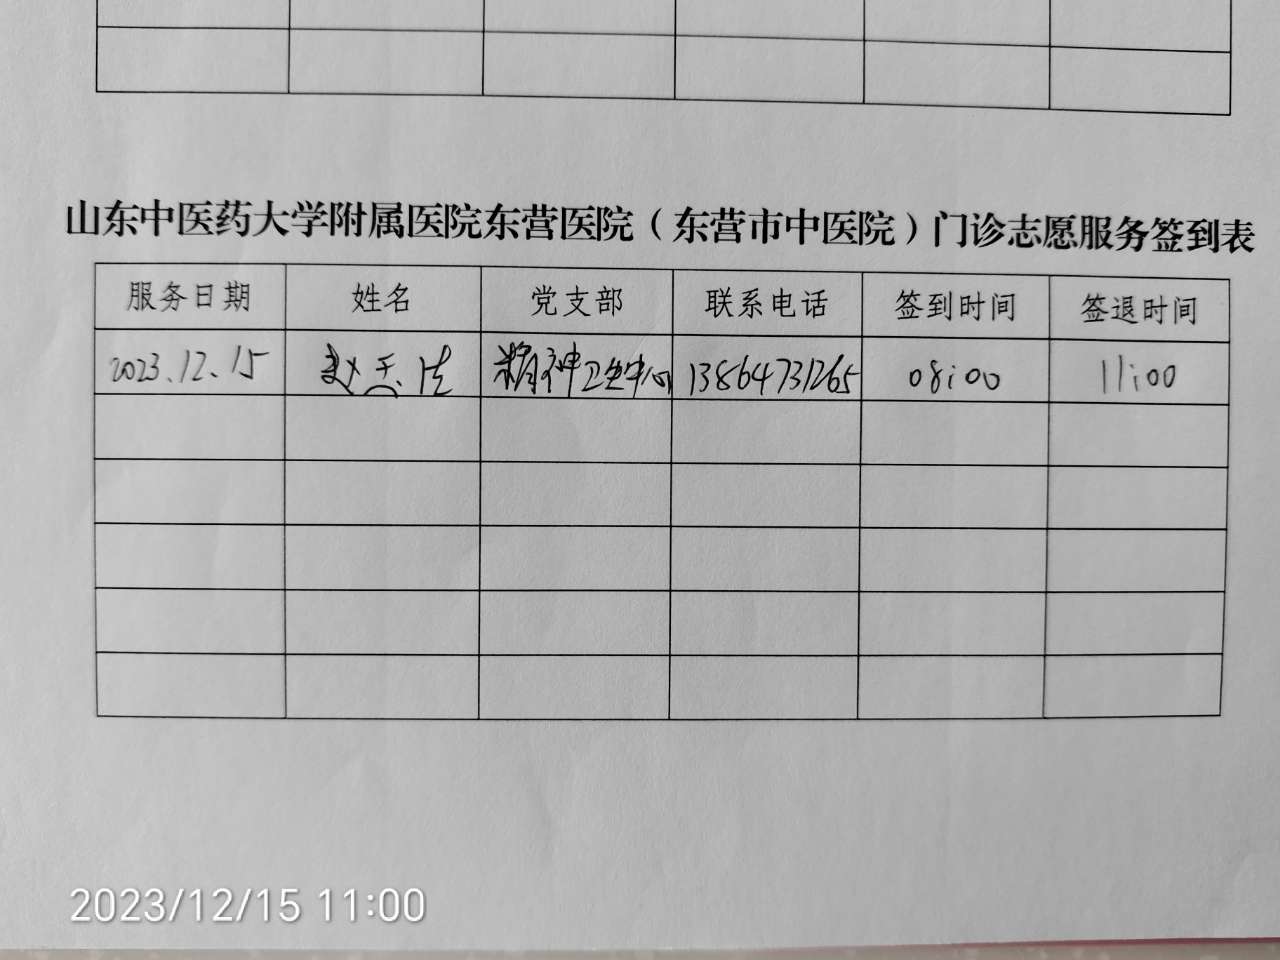 山东中医药大学附属医院东营医院（东营市中医院）门诊志愿服务签到表
服务日期 姓名 党支部 联系电话 签到时间 签退时间
2023.12.15 赵 精神卫生中心 13864731265 08:00 11:00
2023/12/15 11:00